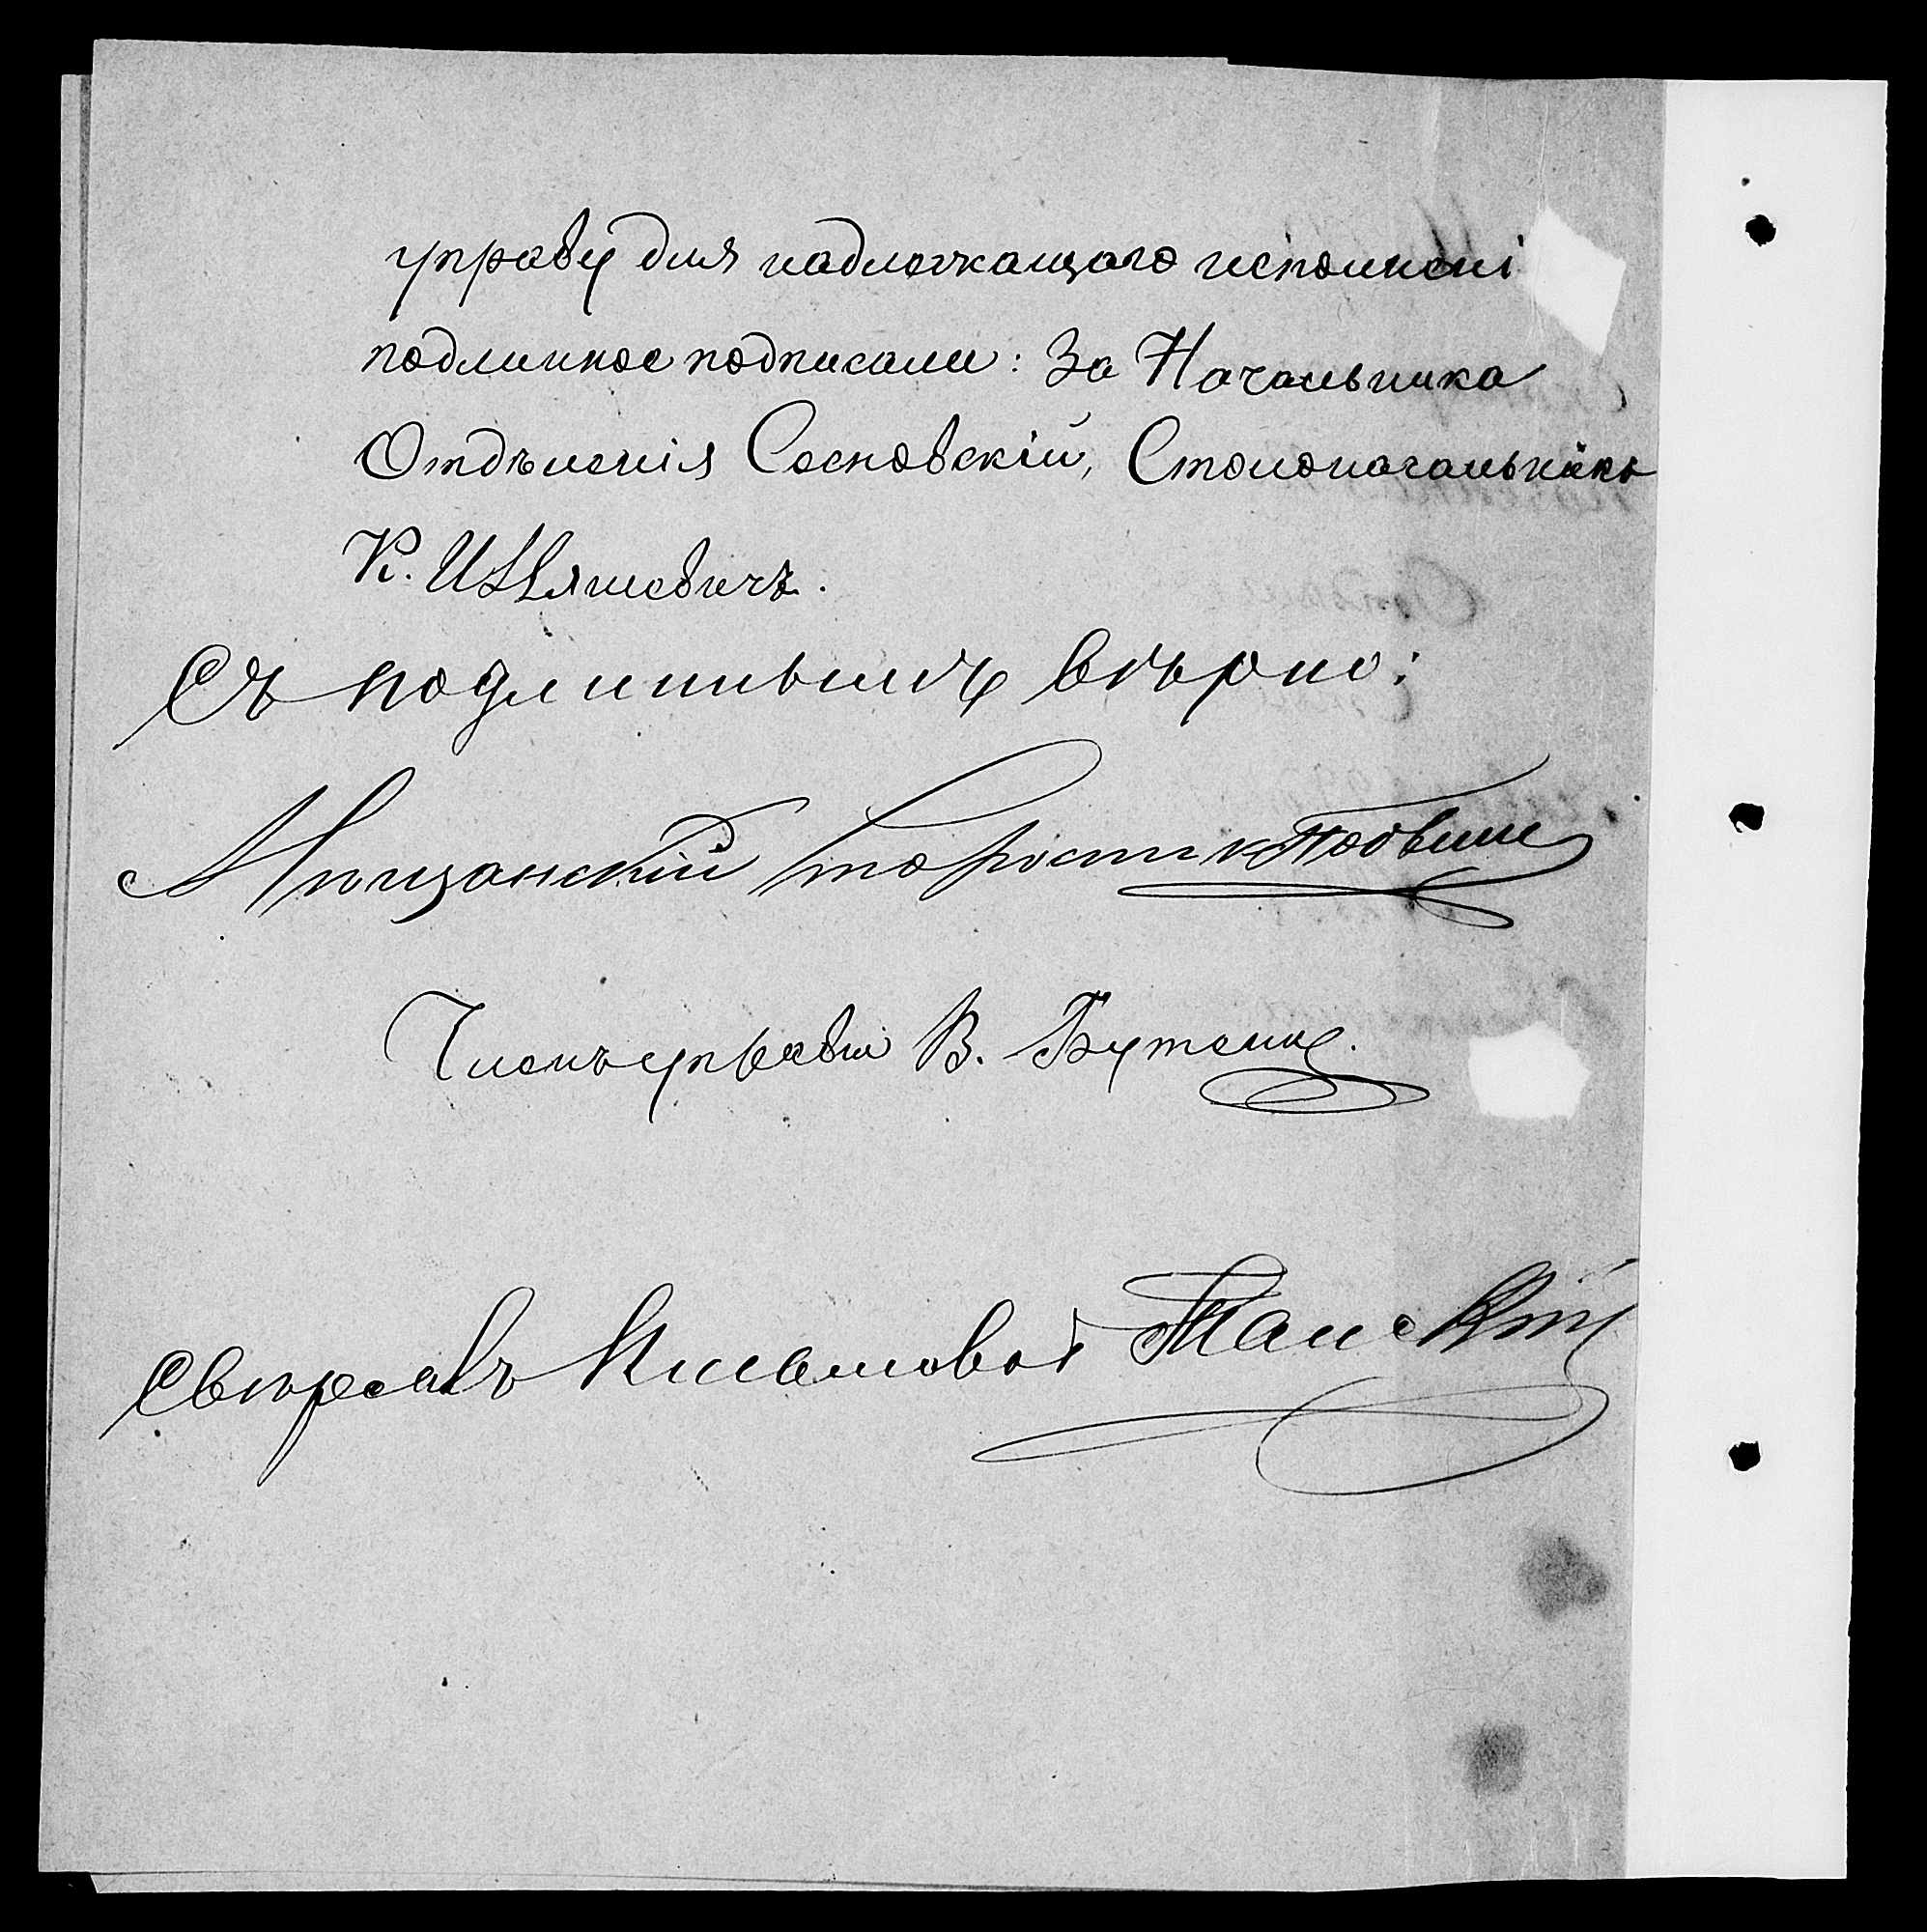 управу для надлежащаго исполнені
подлинное подписали: За Начальника
Отдѣленія Сосновскій, Столоначальникъ
К.
Съ подлиннымъ вѣрно:
Мѣщанскій Староста
Членъ управы В. Бутенко.
Свѣрялъ